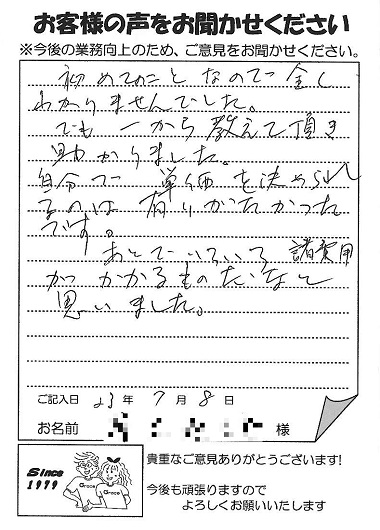 お客様の声をお聞かせください
※今後の業務向上のため、ご意見をお聞かせください。
初めてのことなので全く
わかりませんでした。
でも一から教えて頂き
助かりました。
自分で単価を決められ
るのは有りがたかった
です。
あとでいろいろ諸費用
がかかるものだなと
思いました。
ご記入日 23年 7月 8日
お名前 様
Since
1979
Grace
Grace
貴重なご意見ありがとうございます!
今後も頑張りますので
よろしくお願いいたします